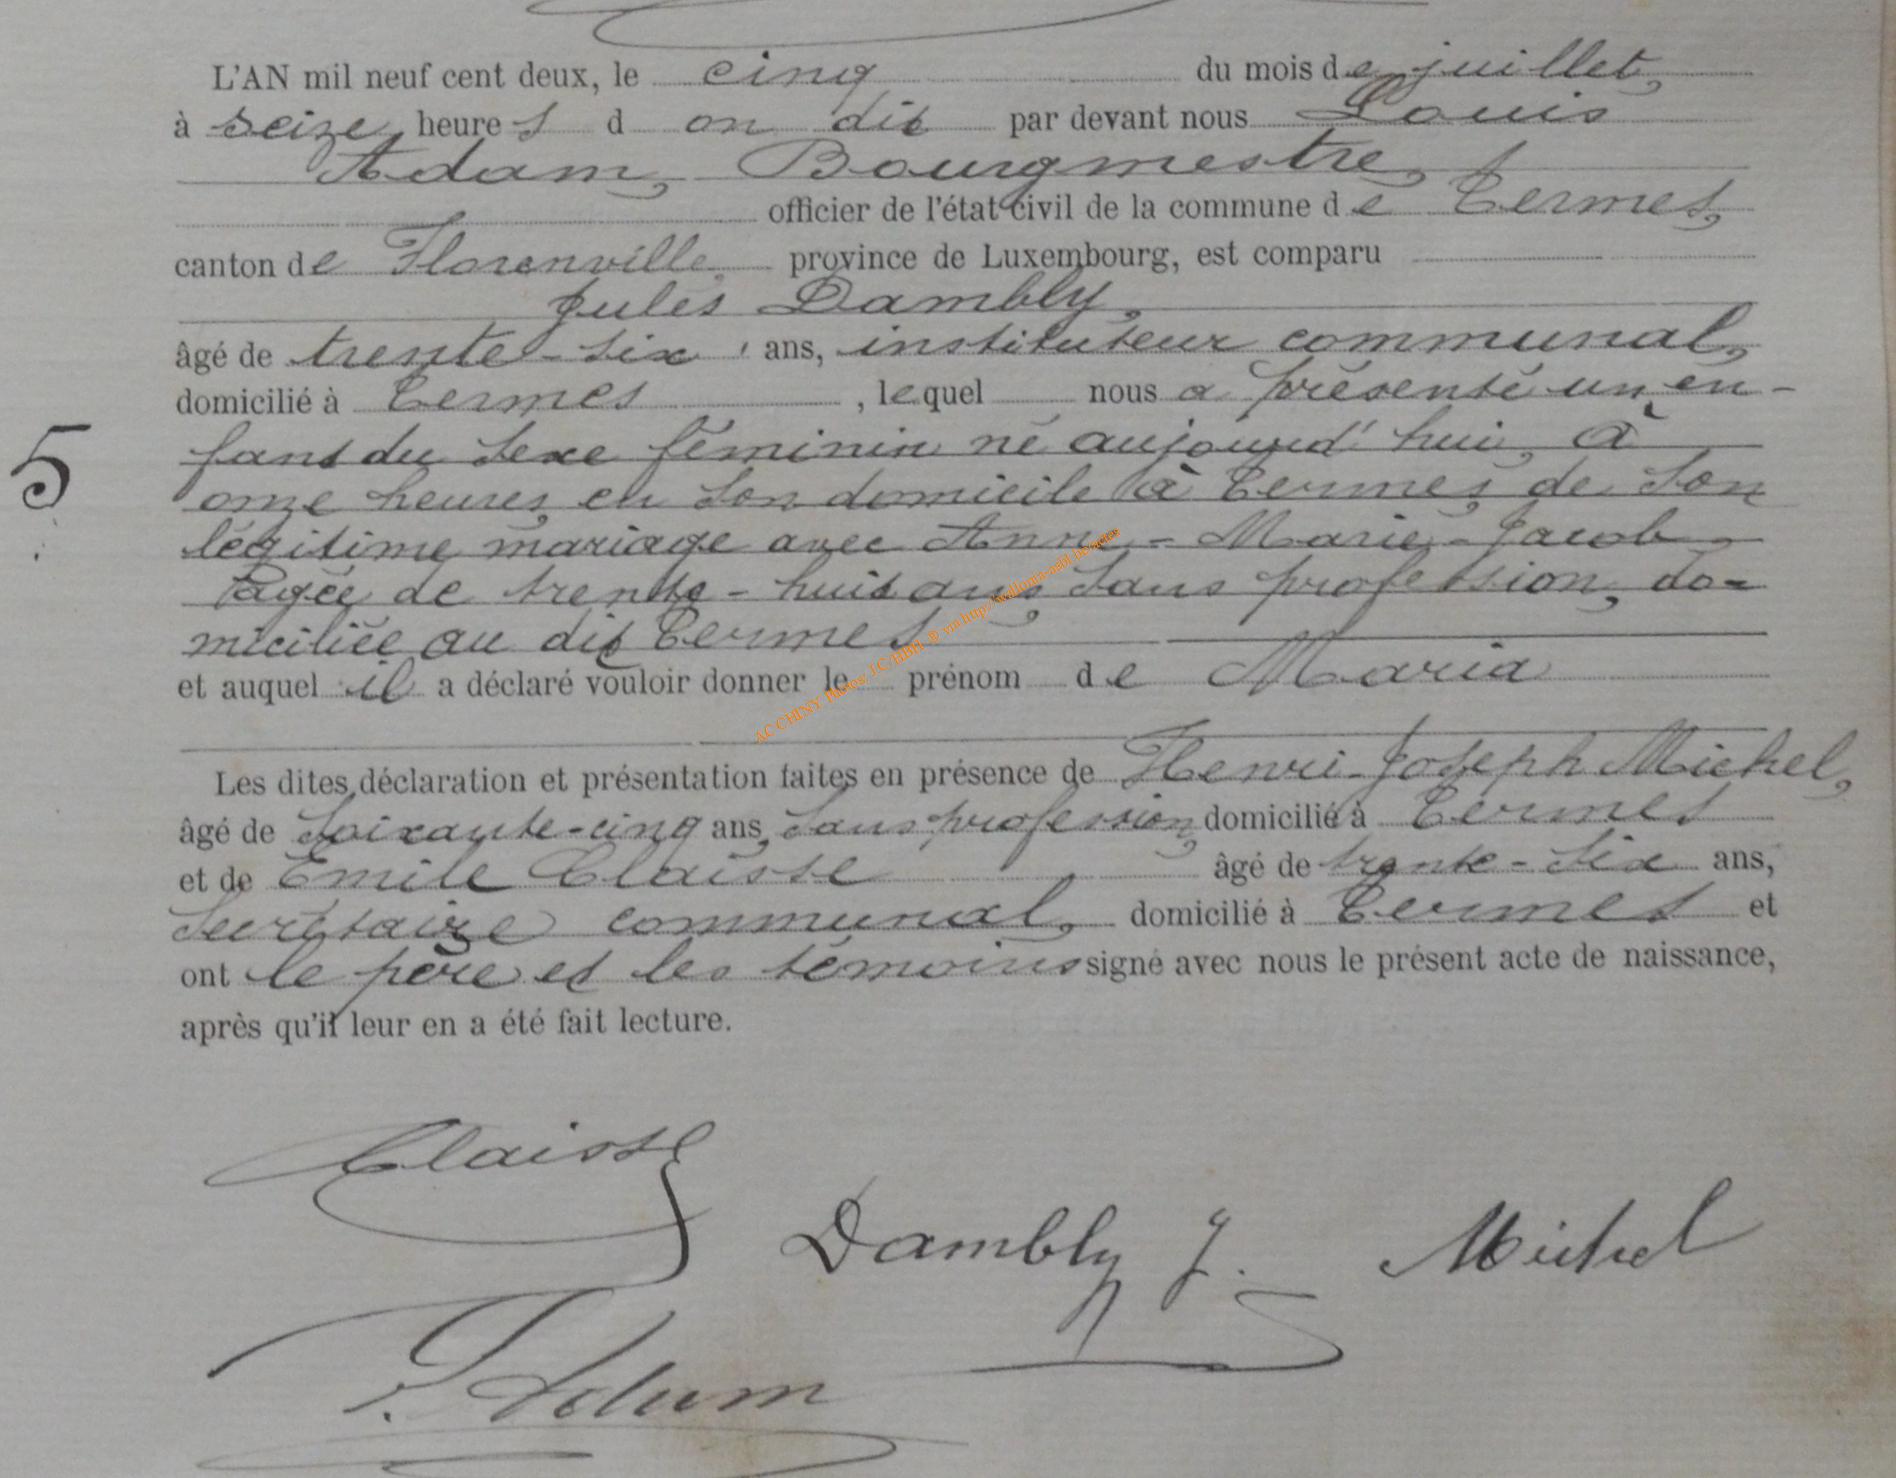 L'AN mil neuf cent deux, le cinq du mois de juillet,
à seize heures d on dit par devant nous Louis
Adam, Bourgmestre,
officier de l'état civil de la commune de Termes,
canton de Florenville, province de Luxembourg, est comparu
Jules Dambly,
âgé de trente-six ans, instituteur communal,
domicilié à Termes , lequel nous a présenté un en-
fant du sexe féminin né aujourd'hui, à
5
onze heures, en son domicile à Termes, de son
légitime mariage avec Anne-Marie-Jacob
âgée de trente-huit ans, sans profession, do-
miciliée au dit Termes
et auquel il a déclaré vouloir donner le prénom de Maria
Les dites déclaration et présentation faites en présence de Henri-Joseph Michel,
âgé de soixante-cinq ans, sans profession, domicilié à Termes
et de Emile Claisse âgé de trente-six ans,
secrétaire communal, domicilié à Termes et
ont le père et les témoins signé avec nous le présent acte de naissance,
après qu'il leur en a été fait lecture.
Claisse
Dambly J. Michel
L. Adam
AC CHINY Photos J.C HBN @ via http://wallonia-asbl.be/actes